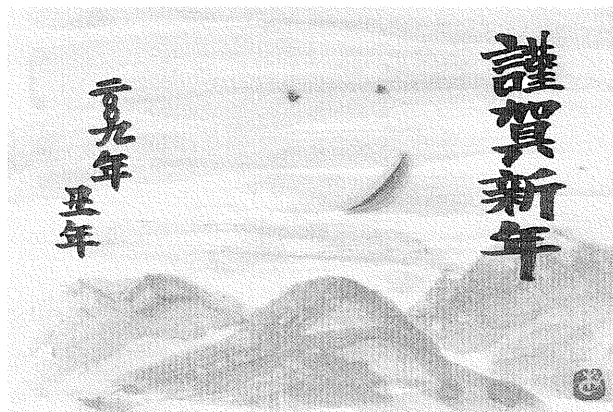 謹賀新年
二〇〇九年
丑年